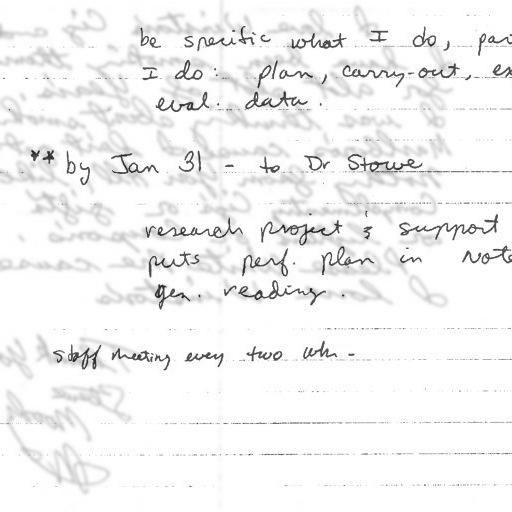 be specific what I do,
I do: plan, carry-out,
eval. data.
** by Jan 31 - to Dr Stowe
research project & support
puts perf. plan in Note
gen. reading.
staff meeting every two wh -